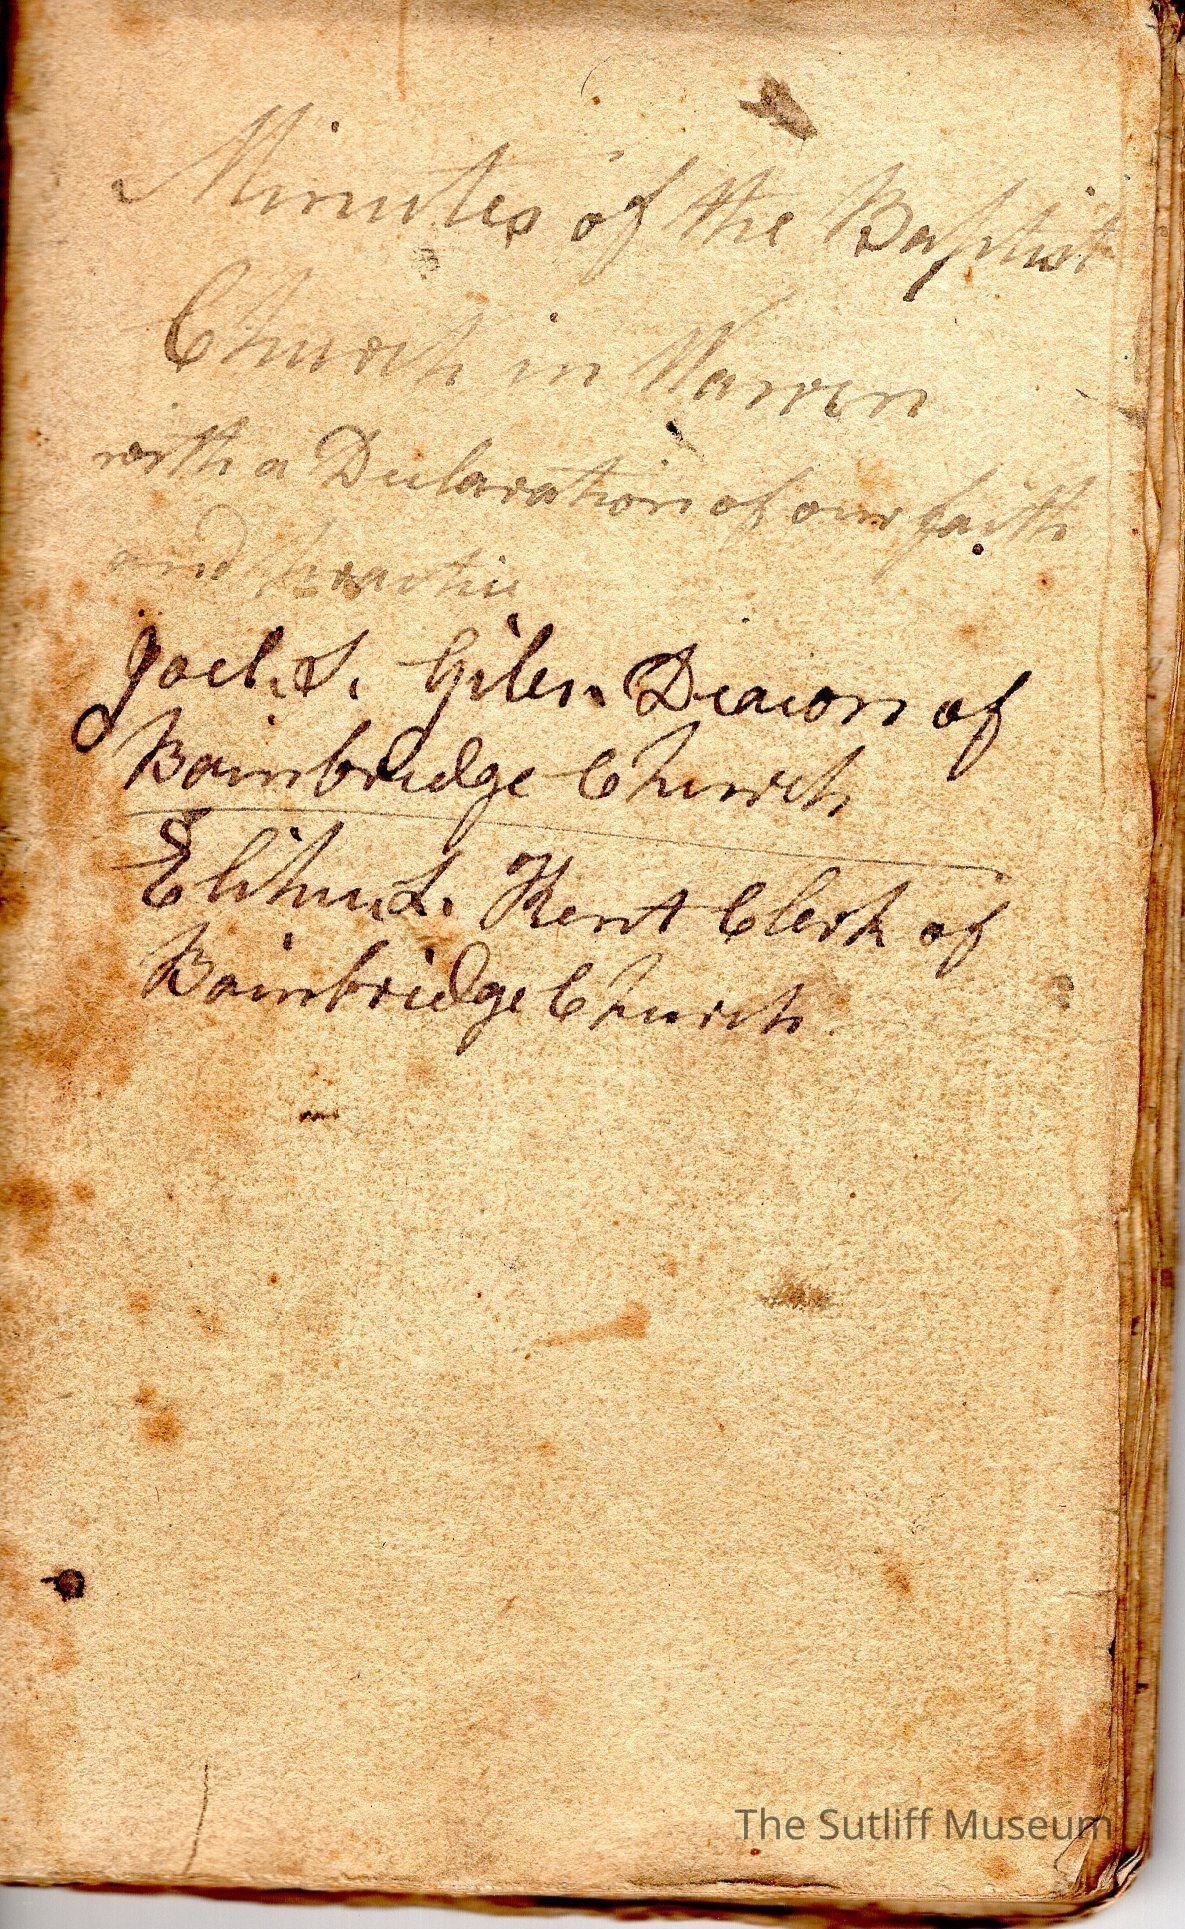 Minutes of the Baptist
Church in Warren
with a Declaration of our faith
and practice
Joel. S. Giles. Deacon of
Bainbridge Church
Elihu. L. Kent Clerk of
Bainbridge Church
The Sutliff Museum